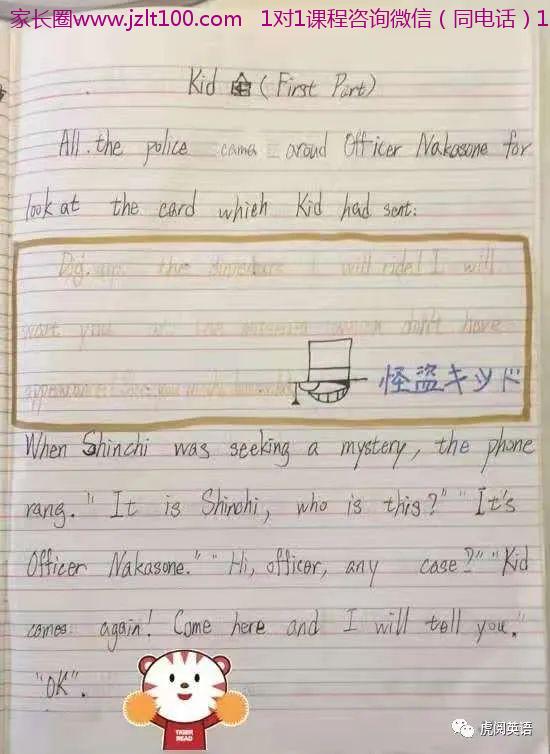 家长圈www.jzlt100.com 1对1课程咨询微信（同电话）1
Kid (First Part)
All the police came aroud Officer Nakasone for
look at the card which Kid had sent:
the will ride! I will
wait you at the which don't have
怪盗キッド
When Shinchi was seeking a mystery, the phone
rang." It is Shinchi, who is this?" "It's
Officer Nakasone." "Hi, officer, any case?" "Kid
comes again! Come here and I will tell you."
"OK".
TIGER
READ
虎阅英语